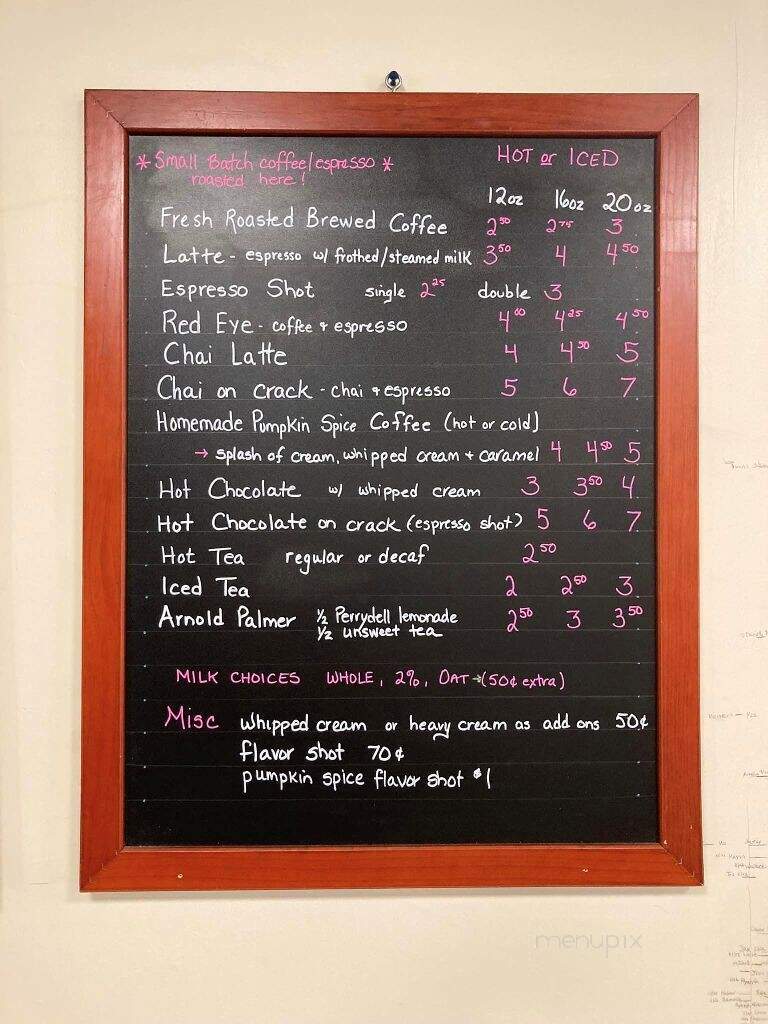 * Small Batch coffee/espresso *
roasted here!
HOT or ICED
12oz 16oz 20oz
Fresh Roasted Brewed Coffee 2⁵⁰ 2⁷⁵ 3
Latte - espresso w/ frothed/steamed milk 3⁵⁰ 4 4⁵⁰
Espresso Shot single 2²⁵ double 3
Red Eye - coffee + espresso 4⁰⁰ 4²⁵ 4⁵⁰
Chai Latte 4 4⁵⁰ 5
Chai on crack - chai + espresso 5 6 7
Homemade Pumpkin Spice Coffee (hot or cold)
→ splash of cream, whipped cream + caramel 4 4⁵⁰ 5
Hot Chocolate w/ whipped cream 3 3⁵⁰ 4
Hot Chocolate on crack (espresso shot) 5 6 7
Hot Tea regular or decaf 2⁵⁰
Iced Tea 2 2⁵⁰ 3
Arnold Palmer ½ Perrydell lemonade 2⁵⁰ 3 3⁵⁰
½ unsweet tea
MILK CHOICES WHOLE, 2%, OAT → (50¢ extra)
Misc whipped cream or heavy cream as add ons 50¢
flavor shot 70¢
pumpkin spice flavor shot $1
menupix